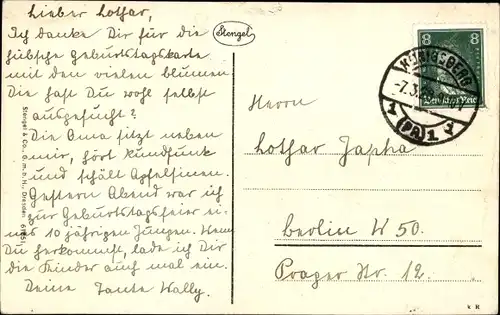 Lieber Lothar,
Ich danke Dir für die
hübsche Geburtstagskarte
mit den vielen blumen
Die hast Du wohl selbst
ausgesucht?
Die Oma sitzt neben
mir, hört Rundfunk
und schält Apfelsinen.
Gestern Abend war ich
zur Geburtstagsfeier ei-
nes 10 jährigen Jungen. Wenn
Du herkommst, lade ich Dir
die Kinder auch mal ein.
Deine Tante Wally.
Stengel
Stengel & Co., G.m.b.H., Dresden
8 8
Deutsches Reich
KÖNIGSBERG
-7.3.
1 (PR) 1
Herrn
Lothar Japha
Berlin W 50.
Prager Str. 12.